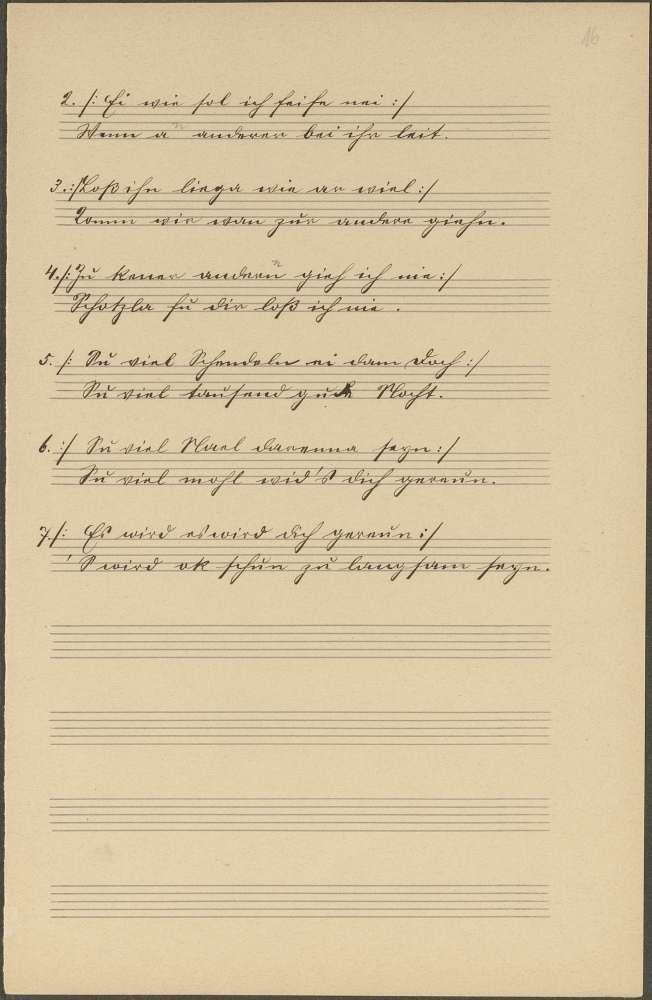 16
2. /: Ei wie sol ich feife nei :/
Wenn a n anderer bei ihr leit.
3. :/ Loß ihn liega wie ar wiel :/
Komm wir wan zur andere giehn.
4. /: Zu kener andern gieh ich nie :/
Schatzla fu dir loß ich nie.
5. /: Su viel Schendeln ei dam Doch :/
Su viel tausend gude Nocht.
6. :/ Su viel Nael darenna seyn :/
Su viel mohl wid's dich gereun.
7. /: Es wird es wird dich gereun :/
'S wird ok schun zu langsam seyn.